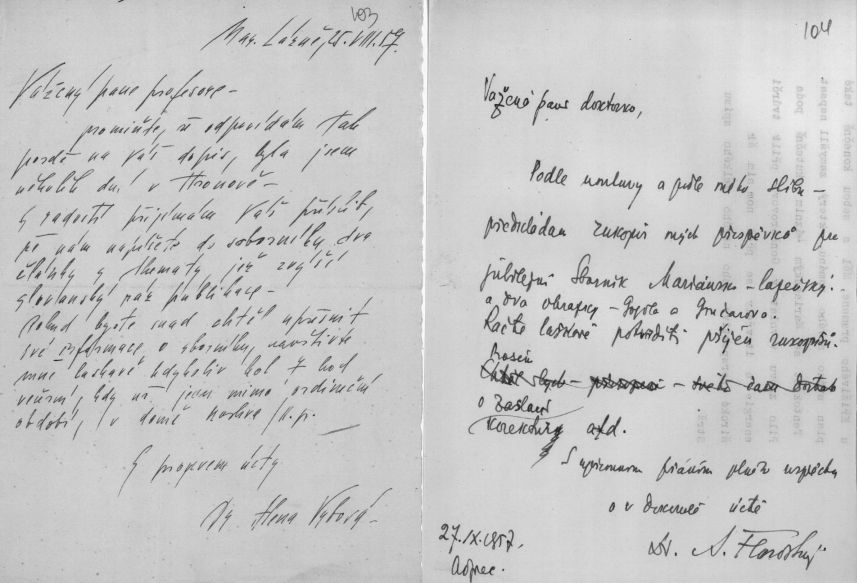 103
Mar. Lázně, 25. VIII. 57.
Vážený pane profesore –
promiňte, že odpovídám tak
pozdě na Váš dopis, byla jsem
několik dní v Hronově –
S radostí přijímám Vaši
že nám napíšete do sborníku dva
články s thematy, jež zvýší
slovanský ráz publikace –
Pokud byste snad chtěl upřesnit
své informace o sborníku, navštivte
mne laskavě kdykoliv kol 7 hod
večerní, kdy už jsem mimo ordinační
období, v domě
S projevem úcty
Dr. Alena
104
Vážená paní doktorko,
Podle úmluvy a podle mého slibu –
předkládám rukopis mých příspěvků pro
jubilejní Sborník Mariánsko-lázeňský.
a dva obrázky – Gogola a Gončarova.
Račte laskavě potvrditi přijetí rukopisů.
Prosím
o zaslání
korektury atd.
S upřímným přáním plného úspěchu
a v dokonalé úctě
27.IX.1957.
Dr. A. Florovskij